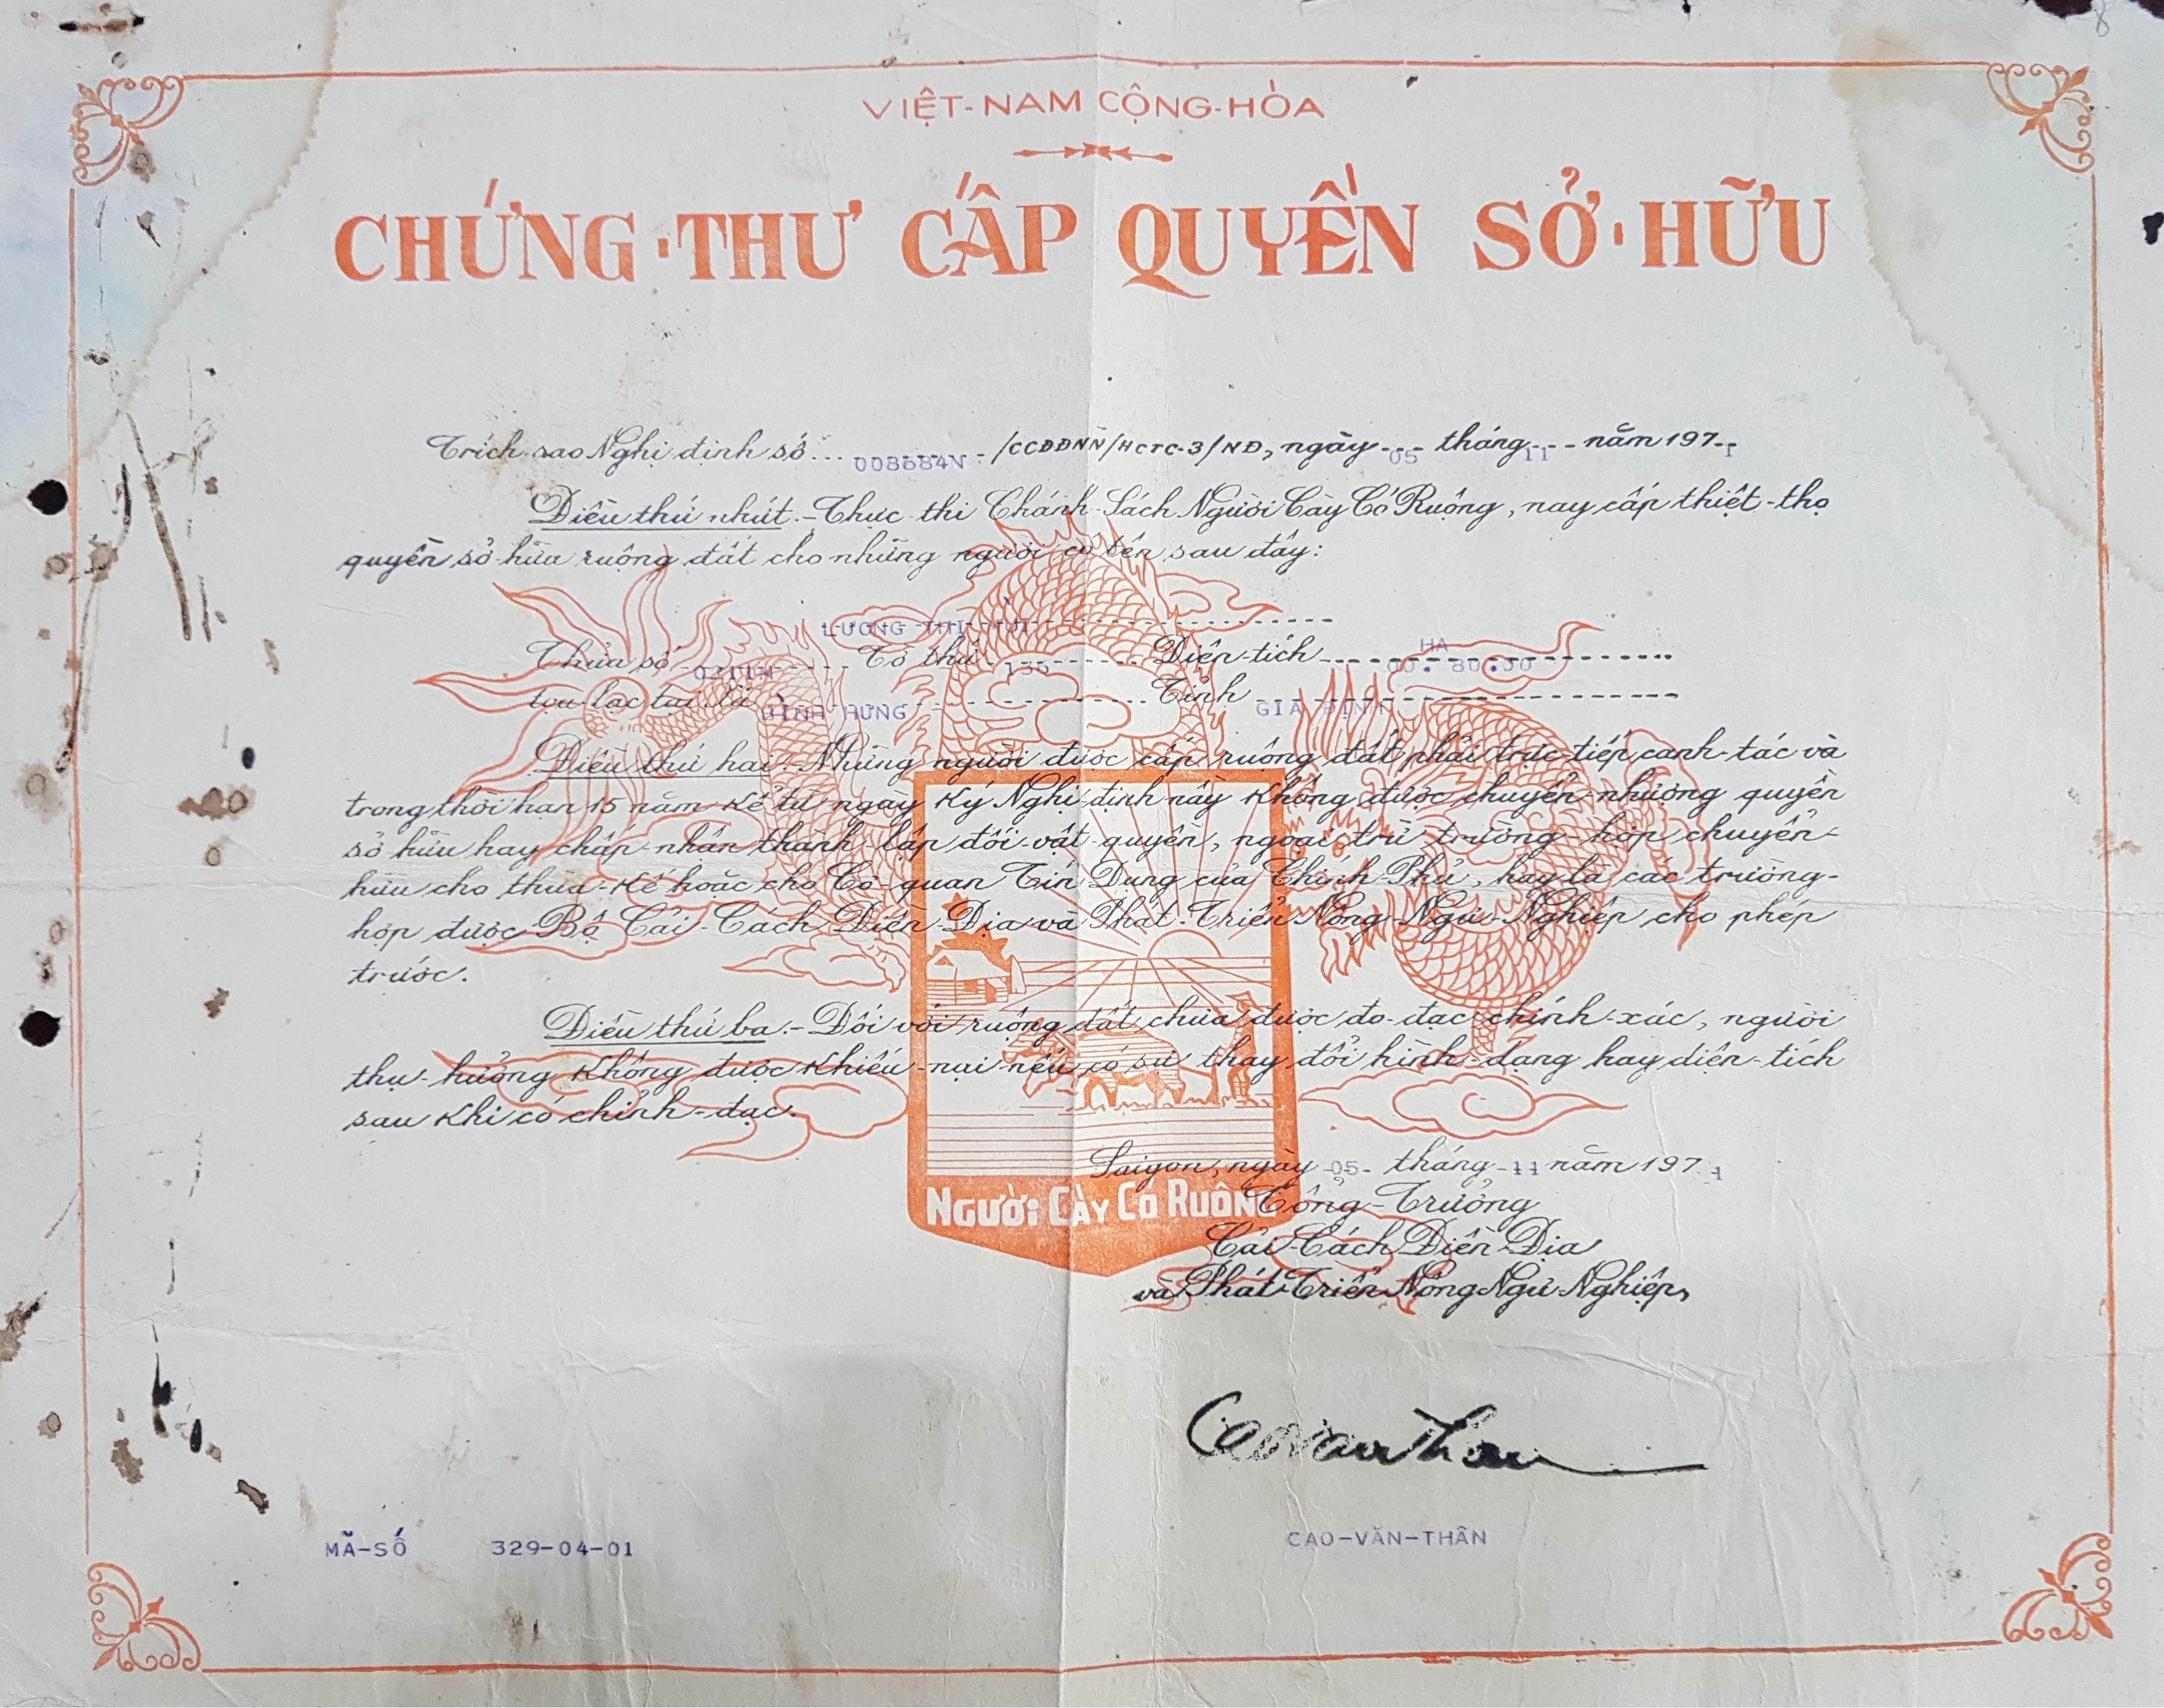 VIỆT-NAM CỘNG-HÒA
CHỨNG-THƯ CẤP QUYỀN SỞ-HỮU
Trích sao Nghị định số 008684N /CCĐĐNN/HCTC-3/NĐ, ngày 05 tháng 11 năm 1971
Điều thứ nhứt.- Thực-thi Chánh-Sách Người Cày Có Ruộng, nay cấp thiệt-thọ
quyền sở-hữu ruộng đất cho những người có tên sau đây:
LƯƠNG THỊ
Thửa số 0211N Tờ thứ Diện-tích HA 00.80.00
tọa-lạc tại Xã BÌNH HƯNG Tỉnh GIA ĐỊNH
Điều thứ hai.- Những người được cấp ruộng đất phải trực-tiếp canh-tác và
trong thời hạn 15 năm kể từ ngày ký Nghị-định nầy không được chuyển-nhượng quyền
sở-hữu hay chấp-nhận thành-lập đối-vật-quyền, ngoại trừ trường-hợp chuyển-
hữu cho thừa-kế hoặc cho Cơ-quan Tín Dụng của Chính-Phủ, hay là các trường-
hợp được Bộ Cải-Cách Điền-Địa và Phát-Triển Nông-Ngư-Nghiệp cho phép
trước.
Điều thứ ba.- Đối với ruộng đất chưa được đo-đạc chính-xác, người
thụ-hưởng không được khiếu-nại nếu có sự thay đổi hình-dạng hay diện-tích
sau khi có chỉnh-đạc.
Saigon, ngày 05 tháng 11 năm 1971
NGƯỜI CÀY CÓ RUỘNG
Tổng-Trưởng
Cải-Cách Điền-Địa
và Phát-Triển Nông Ngư-Nghiệp,
Cao Van Than
MÃ-SỐ 329-04-01
CAO-VĂN-THÂN